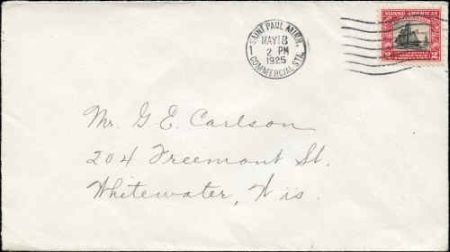 NORSE-AMERICAN
SAINT PAUL, MINN.
MAY 18
2 PM
1925
COMMERCIAL STA.
2 2
Mr. G E. Carlson
204 Freemont St.
Whitewater, Wis.